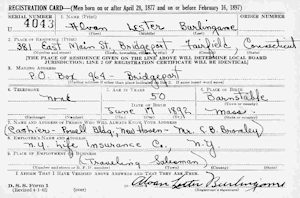 REGISTRATION CARD—(Men born on or after April 28, 1877 and on or before February 16, 1897)
SERIAL NUMBER 1. NAME (Print) ORDER NUMBER
4043 Alvan Lester Burlingame
2. PLACE OF RESIDENCE (Print)
381 East Main St, Bridgeport, Fairfield, Conecticut
[THE PLACE OF RESIDENCE GIVEN ON THE LINE ABOVE WILL DETERMINE LOCAL BOARD
JURISDICTION; LINE 2 OF REGISTRATION CERTIFICATE WILL BE IDENTICAL]
3. MAILING ADDRESS
P.O. Box 964 - Bridgeport
4. TELEPHONE 5. AGE IN YEARS 6. PLACE OF BIRTH
none 50 Barnstable
DATE OF BIRTH
June 17 1892 Mass
7. NAME AND ADDRESS OF PERSON WHO WILL ALWAYS KNOW YOUR ADDRESS
(Cashier - Powell Bldg, New Haven - Mr. C B Bromley)
8. EMPLOYER'S NAME AND ADDRESS
N.Y. Life Insurance Co., N.Y.
9. PLACE OF EMPLOYMENT OR BUSINESS
(Traveling Salesman)
I AFFIRM THAT I HAVE VERIFIED ABOVE ANSWERS AND THAT THEY ARE TRUE.
D. S. S. Form 1
Alvan Lester Burlingame